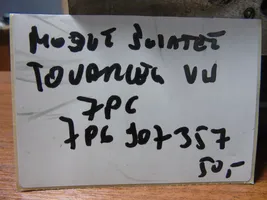 MODUŁ ŚWIATEŁ
TOUAREG VW
7PC
7P6 907357
50,-